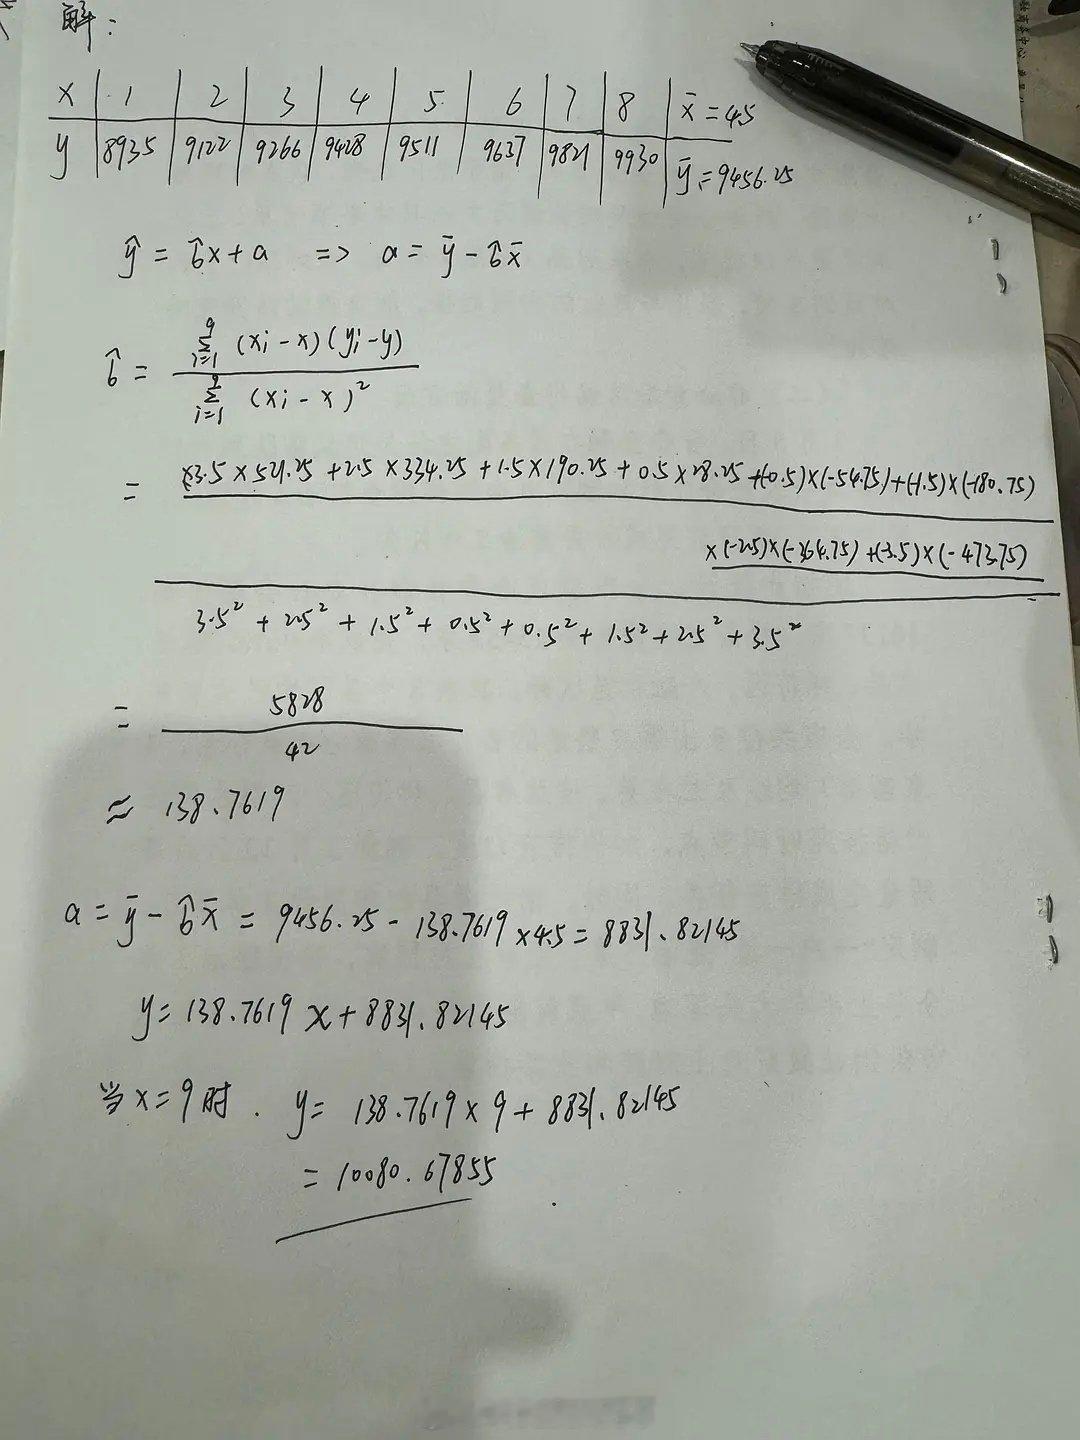 解:
x 1 2 3 4 5 6 7 8 x̄=4.5
y 8935 9122 9266 9428 9511 9637 9821 9930 ȳ=9456.25
ŷ = b̂x+a => a=ȳ-b̂x̄
b̂ = \frac{\sum_{i=1}^{9}(xi-x)(yi-y)}{\sum_{i=1}^{9}(xi-x)^2}
= ×3.5×521.25+2.5×334.25+1.5×190.25+0.5×28.25+(-0.5)×(-54.75)+(-1.5)×(-180.75)
×(-2.5)×(-364.75)+(-3.5)×(-473.75)
3.5²+2.5²+1.5²+0.5²+0.5²+1.5²+2.5²+3.5²
= \frac{5828}{42}
≈ 138.7619
a=ȳ-b̂x̄=9456.25-138.7619×4.5=8831.82145
y=138.7619x+8831.82145
当x=9时. y=138.7619×9+8831.82145
=10080.67855